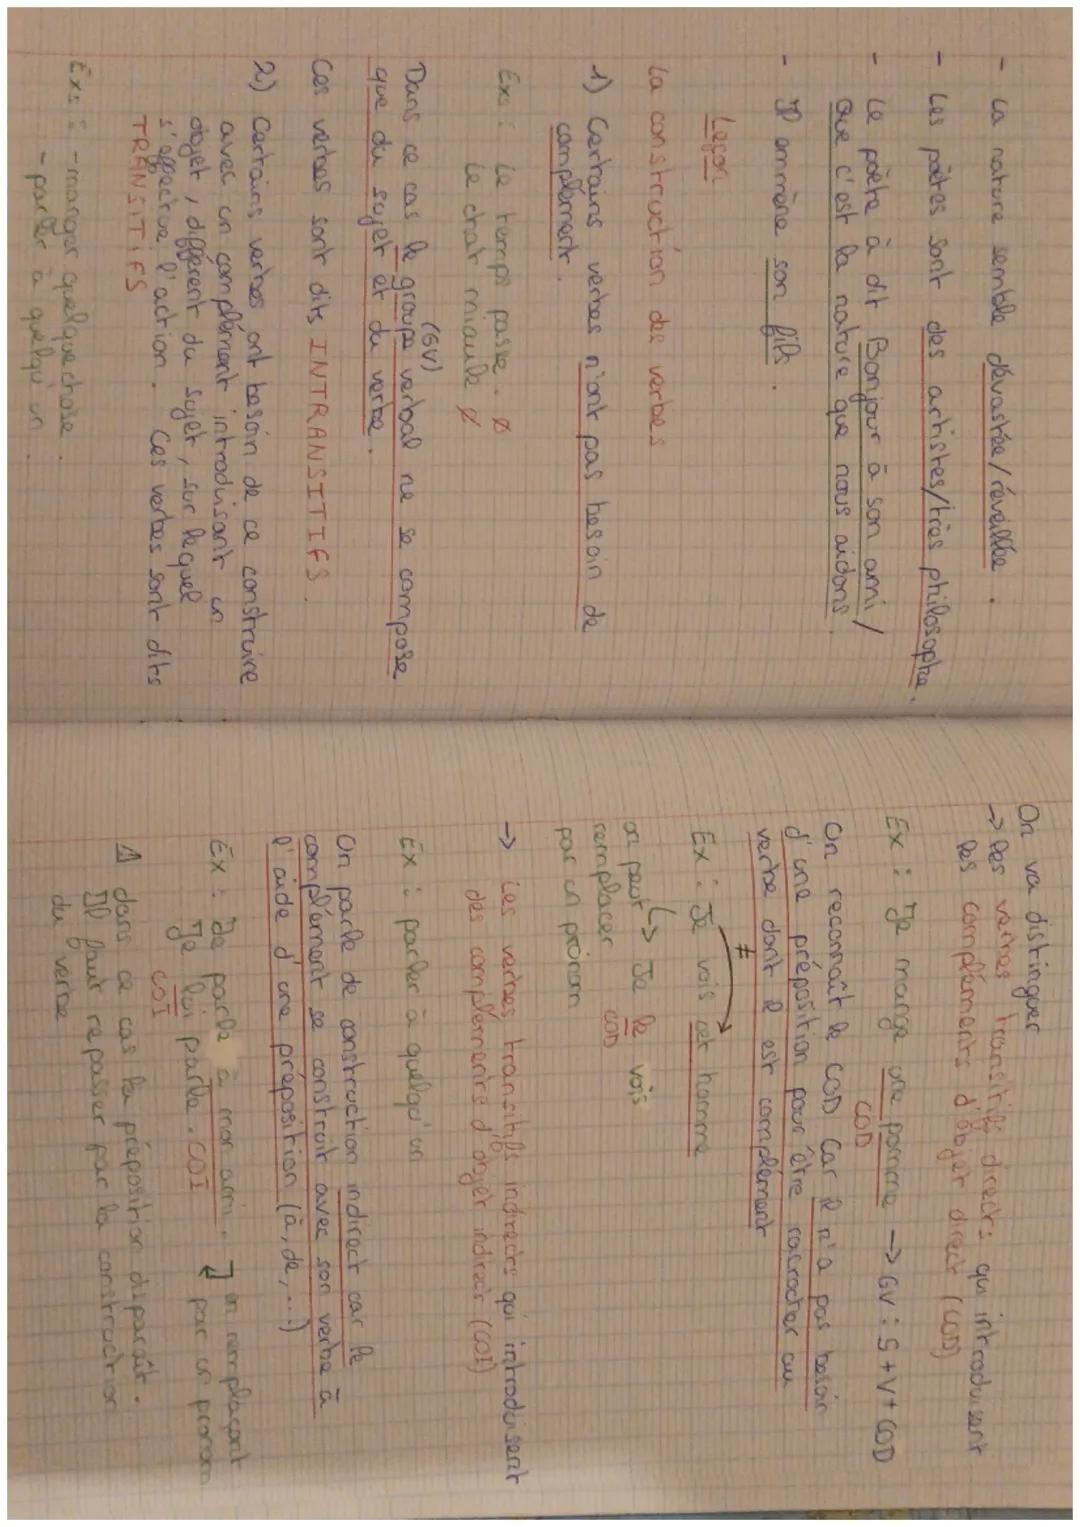 - La nature semble dévastée/réveillée.
- Les pœtes sont des artistes/très philosophe.
- Le pœte à dit Bonjour à son ami/
que c'est la nature que nous aidons
- Il emmène son fils.
Leçon
La construction de verbes
1) Certains verbes n'ont pas besoin de
complément.
Exs : Le temps passe. Ø
Le chat miaule Ø
(GV)
Dans ce cas le groupe verbal ne se compose
que du sujet et du verbe.
Ces verbes sont dits INTRANSITIFS.
2) Certains verbes ont besoin de ce construire
avec un complément introduisant un
objet, différent du sujet, sur lequel
s'effectue l'action. Ces verbes sont dits
TRANSITIFS
Exs : - manger quelque chose.
- parler à quelqu'un.
On va distinguer
-> Les verbes transitifs directs qui introduisent
des compléments d'objet direct (COD)
Ex : Je mange une pomme -> GV : S+V+COD
COD
On reconnaît le COD car il n'a pas besoin
d'une préposition pour être racrocher au
verbe dont il est complément
≠
Ex : Je vois cet homme
on peut -> Je le vois
remplacer COD
par un pronom
-> Les verbes transitifs indirects qui introduisent
des compléments d'objet indirect (COI)
Ex : parler à quelqu'un
On parle de construction indirect car le
complément se construit avec son verbe à
l'aide d'une préposition (à, de, ...)
Ex : Je parle à mon ami. en remplaçant
Je lui parle. COI par un pronom
COI
⚠ dans ce cas la préposition disparaît.
Il faut repasser par la construction
du verbe